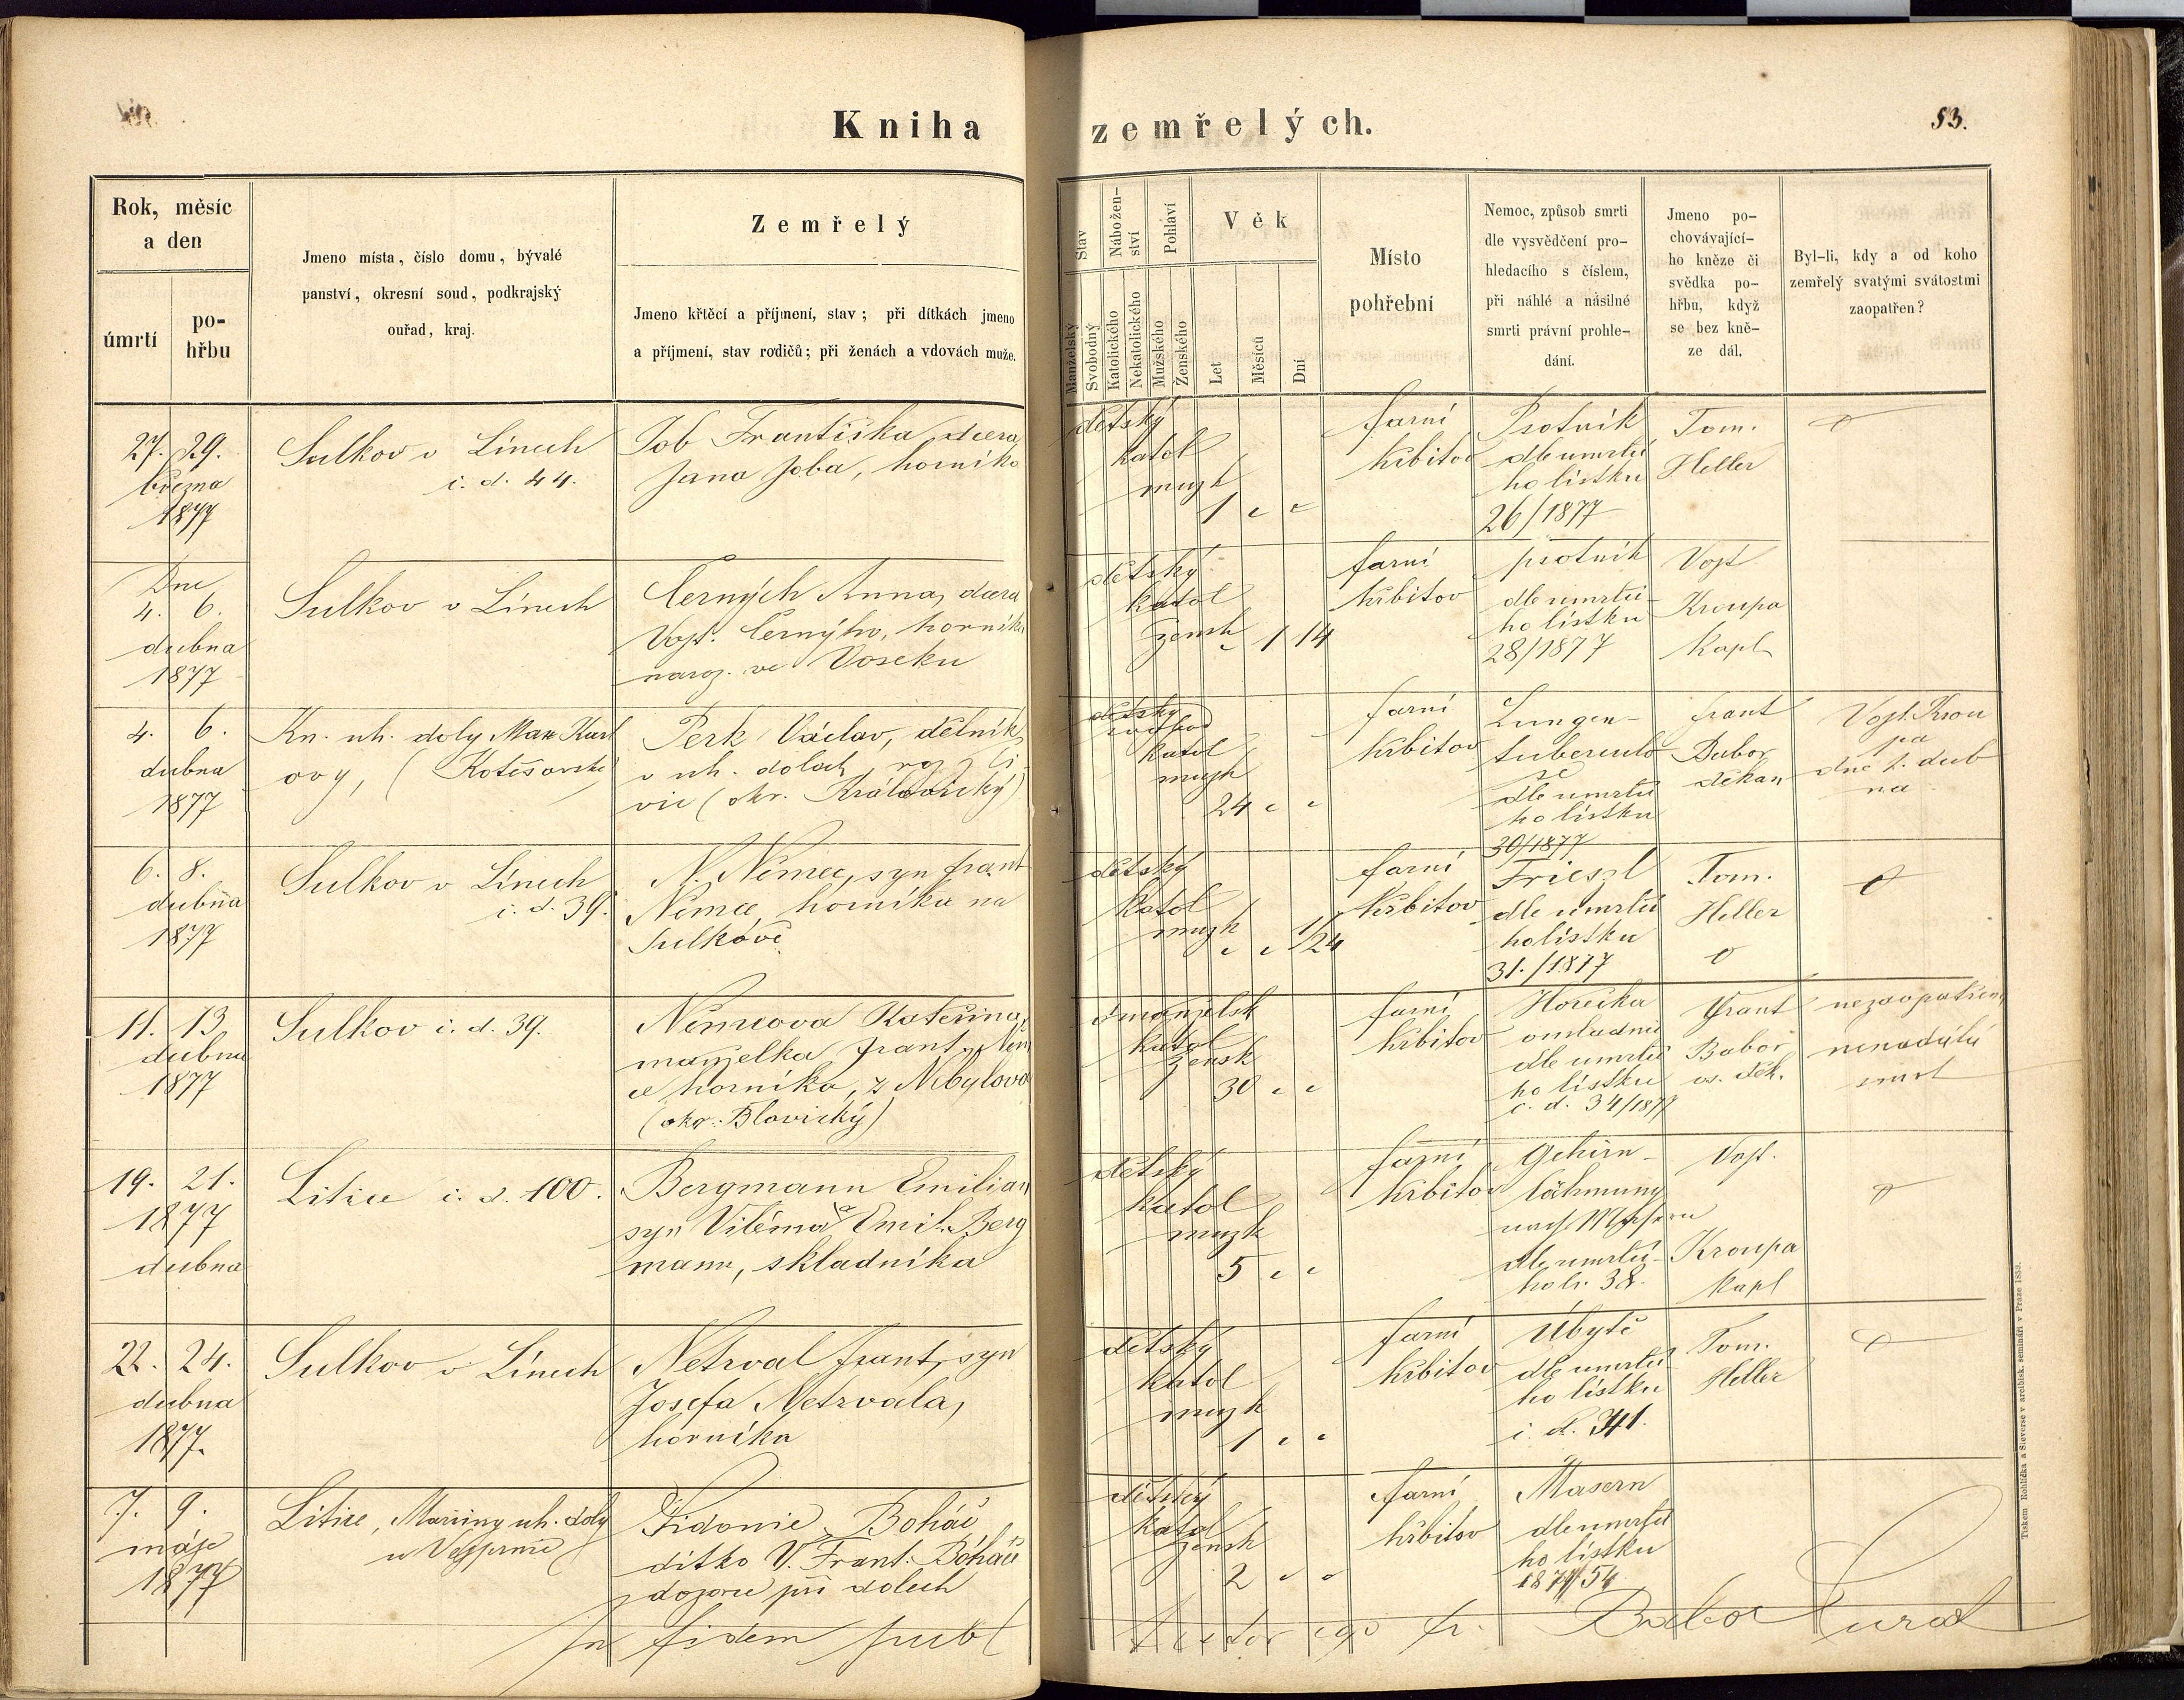 Kniha zemřelých.
53.
Rok, měsíc
a den
úmrtí
po-
hřbu
Jmeno místa, číslo domu, bývalé
panství, okresní soud, podkrajský
ouřad, kraj.
Zemřelý
Jmeno křtěcí a příjmení, stav; při dítkách jmeno
a příjmení, stav rodičů; při ženách a vdovách muže.
Stav
Manželský
Svobodný
Nábožen-
ství
Katolického
Nekatolického
Pohlaví
Mužského
Ženského
Věk
Let
Měsíců
Dní
Místo
pohřební
Nemoc, způsob smrti
dle vysvědčení pro-
hledacího s číslem,
při náhlé a násilné
smrti právní prohle-
dání.
Jmeno po-
chovávající-
ho kněze či
svědka po-
hřbu, když
se bez kně-
ze dál.
Byl-li, kdy a od koho
zemřelý svatými svátostmi
zaopatřen?
27. 29.
března
1877
Sulkov v Línech
č. d. 44.
Job Františka dcera
Jana Joba, horníka
dětský
katol
muzk
1 " "
farní
hřbitov
Psotník
dle umrtčí
ho lístku
26/1877
Tom.
Heller
Dne
4. 6.
dubna
1877
Sulkov v Línech
Černých Anna, dcera
Vojt. Černýho, horníka
naroz. ve Voseku
dětský
katol
žensk
" 1 14
farní
hřbitov
psotník
dle umrtčí-
ho lístku
28/1877
Vojt
Kroupa
Kapl
4. 6.
dubna
1877
Kn. uh. doly Max Karl
ovy, (Kotěšovské)
Perk Václav, dělník
v uh. dolech, roz z Či
vic (okr. Královický)
dětský
katol
muzk
24 " "
farní
hřbitov
Lungen-
tuberculo
se
dle umrtčí
ho lístku
30/1877
Frant
Babor
děkan
Vojt. Krou
pa
dne 1. dub
na
6. 8.
dubna
1877
Sulkov v Línech
č. d. 39.
N. Němec, syn Frant
Němce, horníka na
Sulkově
dětský
katol
muzk
" " 1/24
farní
hřbitov
Friesel
dle umrtčí
ho lístku
31./1877
Tom.
Heller
11. 13.
dubna
1877
Sulkov č. d. 39.
Němcova Kateřina,
manželka Frant. Něm
ce horníka, z Nebylova
(okr. Blovický)
manželsk
katol
žensk
30 " "
farní
hřbitov
Horečka
omladnic
dle umrtčí
ho lístku
č. d. 34/1877
Frant
Babor
os. děk.
nezaopatřena
nenadálá
smrt
19. 21.
1877
dubna
Litice č. d. 100.
Bergmann Emilian
syn Viléma a Emil. Berg
mann, skladníka
dětský
katol
muzk
5 " "
farní
hřbitov
Gehirn-
lähmung
nach Masern
dle umrtčí-
ho li. 38.
Vojt.
Kroupa
Kapl
22. 24.
dubna
1877.
Sulkov v Línech
Netrval Frant, syn
Josefa Netrvala,
horníka
dětský
katol
muzk
1 " "
farní
hřbitov
Úbytě
dle umrtčí
ho lístku
č. d. 41.
Tom.
Heller
7. 9.
máje
1877
Litice, Mariiny uh. doly
u Vejprnic
Sidonie Boháč
dítko V. Frant. Boháče
dozorce při dolech
dětský
katol
žensk
2 " "
farní
hřbitov
Masern
dle umrtčí
ho lístku
1877/54
In fidem publ
testor ego Fr. Babor Curat
Tiskem Rohlíčka a Sieverse v arcibisk. semináři v Praze 1859.